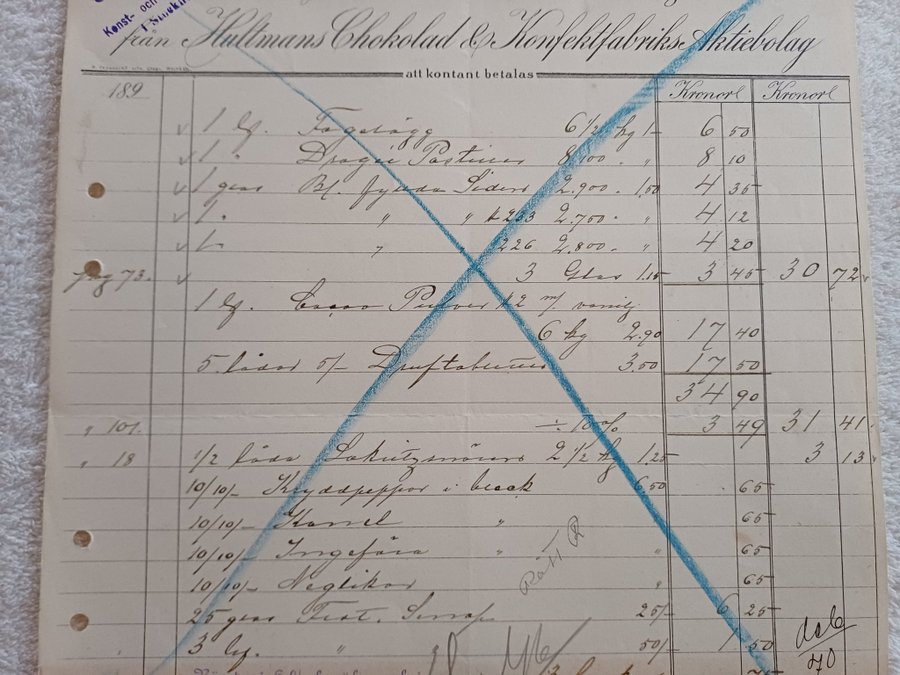 Konst- och
från Hultmans Chokolad & Konfektfabriks Aktiebolag
att kontant betalas
189 Kronor Kronor
1 lg. Fogelägg 6 1/2 kg 1- 6 50
1 " Dragée Pastiller 8,100 " " 8 10
1 gros Bl. fyllda Söders 2.900 " 1,50 4 35
1 " " " 233 2.700 " " 4 12
1 " " 226 2.800 " " 4 20
73. 3 Glas 1.15 3 45 30 72
1 lg. Cacao Pulver 2 m/ vanilj
6 kg 2.90 17 40
5 lådor 5/- 3.50 17 50
34 90
" 101. ÷ 10% 3 49 31 41
" 18 1/2 låda Lakritzsnören 2 1/2 kg 1.25 3 13
10/10/- Kryddpeppar i bleck 6.50 65
10/10/- Kanel " 65
10/10/- Ingefära " " 65
10/10/- Neglikor " 65
25 gros 25/- 6 25
3 lg. " 50/- 1 50
Rätt
70